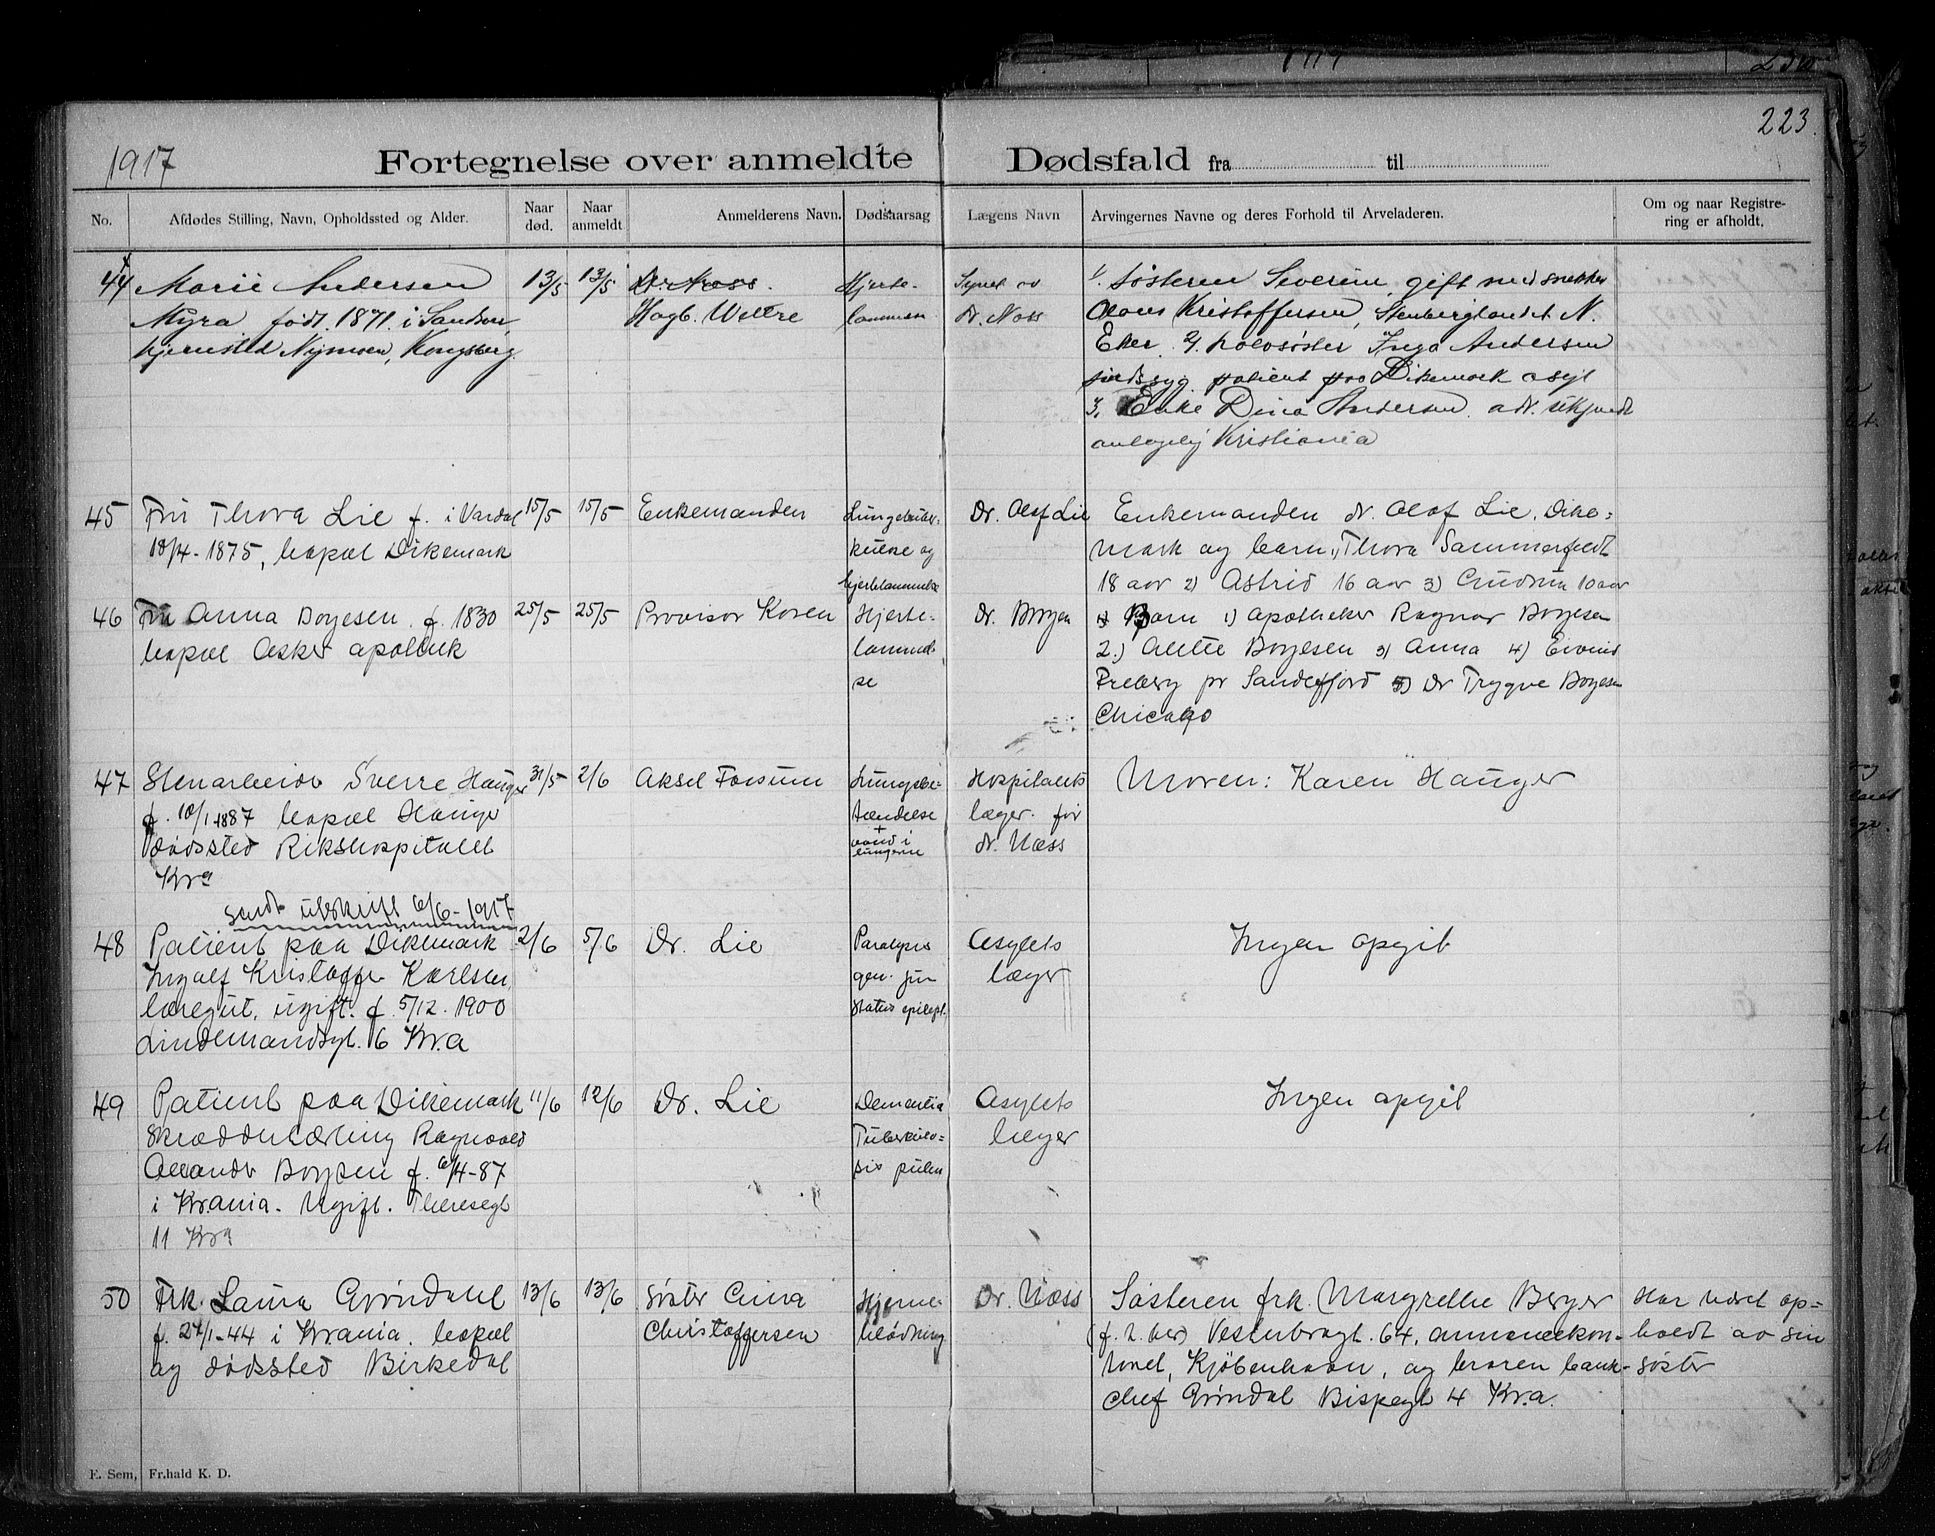 1917 Fortegnelse over anmeldte Dødsfald fra til
223.
No. Afdødes Stilling, Navn, Opholdssted og Alder. Naar død. Naar anmeldt Anmelderens Navn. Dødsaarsag Lægens Navn Arvingernes Navne og deres Forhold til Arveladeren. Om og naar Registrering er afholdt.
44 Marie Andersen 13/5 13/5 Dr. Næss. Hjerte- Synet av 1. Søsteren Severine, gift med snekker
Myra født 1871 i Sandsvær, Hagb. Weltre lammelse dr. Næss Olaus Kristoffersen, Stenberglandet N.
hjemsted Nymoen, Kongsberg Eker 2. halvsøster Inga Andersen
sindssyg. patient paa Dikemark asyl
3. Enke Dina Andersen adr.
Kristiania
45 Fru Thora Lie f. i Vardal 15/5 15/5 Enkemanden Lungetuber- Dr. Olaf Lie Enkemanden dr. Olaf Lie, Dike=
18/4-1875, bopæl Dikemark kulose og mark og barn 1) Thora Sammerfeldt
hjertelammelse 18 aar 2) Astrid 16 aar 3) Gudrun 10 aar
46 Fru Anna Borgesen f. 1830 25/5 25/5 Provisor Koren Hjerte- Dr. Borgen Barn 1) Apotheker Ragnar Borgesen
bopæl Asker apothek lammel- 2.) Alette Borgesen 3) Anna 4) Eivind
se Freberg pr Sandefjord 5) Dr Trygve Borgesen
Chicago
47 Stenarbeider Sverre Hauger 31/5 2/6 Aksel Forsum Lungebe- Hospitalets Moren: Karen Hauger
f. 10/1 1887 bopæl Hauger tændelse læger. for
Dødssted Rikshospitalet + vand i lungerne dr. Næss
Kra
sendt utskrift 6/6-1917
48 Patient paa Dikemark 2/6 5/6 Dr. Lie Paralysis Asylets Ingen opgit
Ingolf Kristoffer Karlsen, gen. juv læger
løregut, ugift. f. 5/12. 1900 Status epilept.
Lindemandsgt. 6 Kr.a
49 Patient paa Dikemark 11/6 12/6 Dr. Lie Dementia Asylets Ingen opgit
Skrædderlærling Ragnvald Tuberkulo= læger
Alexander Borgesen f. 6/4-87 sis pulm
i Krania. Ugift. Theresegt
11 Kra
50 Frk. Laura Grøndahl 13/6 13/6 Søster Anna Hjerne- Dr. Næss Søsteren frk. Margrethe Berger Har været op=
f. 24/1-44 i Krania. bopæl Christoffersen blødning Vesterbrogt. 64, holdt av sin
og dødssted Birkedal Kjøbenhavn, og broren bank- søster
chef Grøndal Bispegt 4 Kr.a.
E. Sem, Fr.hald K. D.